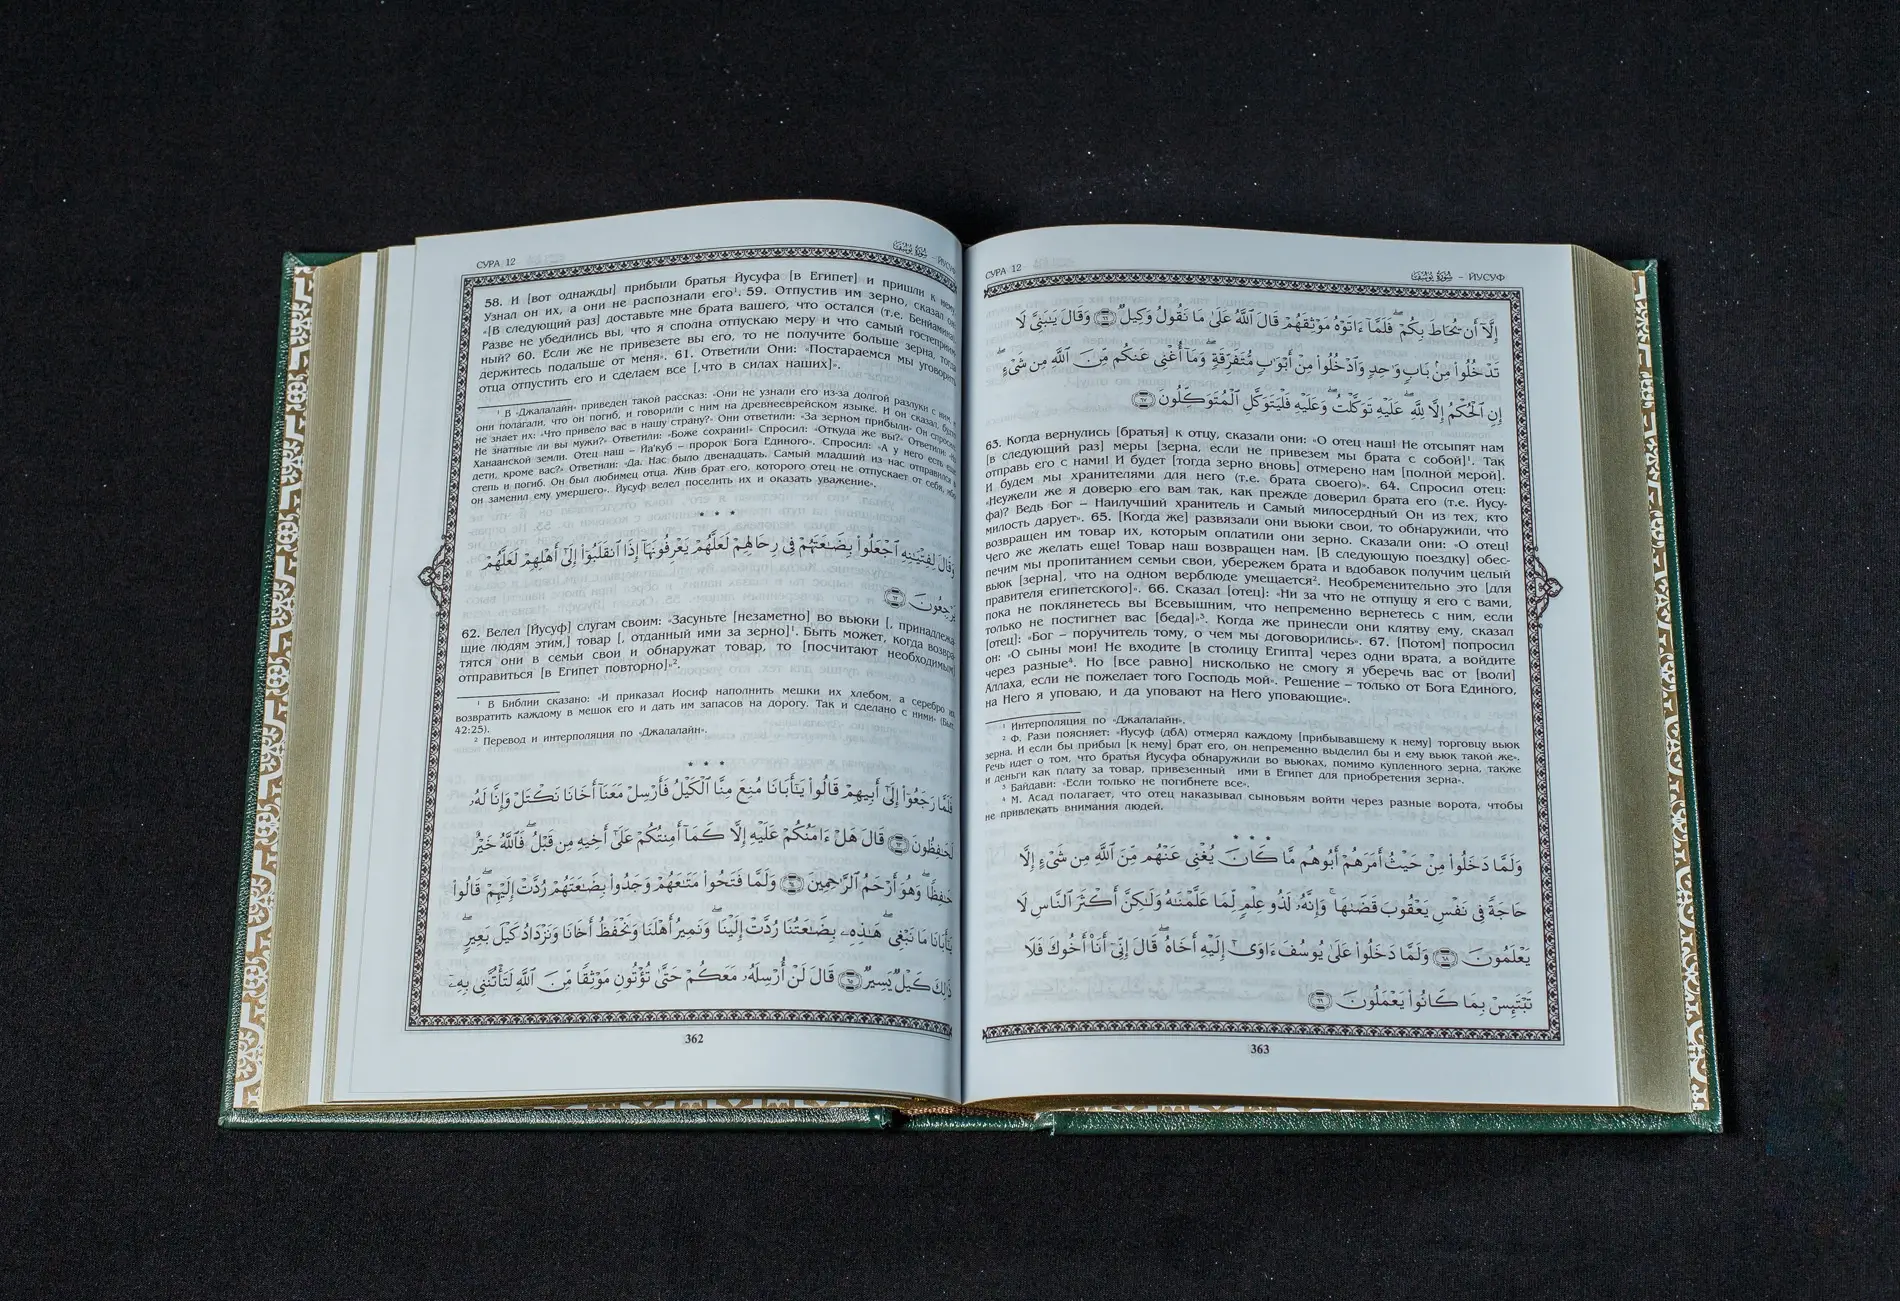 СУРА 12
سُورَةُ يُوسُفَ – ЙУСУФ
58. И [вот однажды] прибыли братья Йусуфа [в Египет] и пришли к нему.
Узнал он их, а они не распознали его¹. 59. Отпустив им зерно, сказал он:
«[В следующий раз] доставьте мне брата вашего, что остался (т.е. Бенйамина).
Разве не убедились вы, что я сполна отпускаю меру и что самый гостеприим-
ный? 60. Если же не привезете вы его, то не получите больше зерна, тогда
держитесь подальше от меня». 61. Ответили Они: «Постараемся мы уговорить
отца отпустить его и сделаем все [,что в силах наших]».
¹ В «Джалалайн» приведен такой рассказ: «Они не узнали его из-за долгой разлуки с ним и
они полагали, что он погиб, и говорили с ним на древнееврейском языке. И он сказал, будто
не знает их: «Что привело вас в нашу страну?» Они ответили: «За зерном прибыли» Он спросил:
Не знатные ли вы мужи?» Ответили: «Боже сохрани!» Спросил: «Откуда же вы?» Ответили: «Из
Ханаанской земли. Отец наш – Йа'куб – пророк Бога Единого». Спросил: «А у него есть еще
дети, кроме вас?» Ответили: «Да. Нас было двенадцать. Самый младший из нас отправился в
степь и погиб. Он был любимец отца. Жив брат его, которого отец не отпускает от себя, ибо
он заменил ему умершего». Йусуф велел поселить их и оказать уважение».
* * *
وَقَالَ لِفِتْيَـٰنِهِ ٱجْعَلُوا۟ بِضَـٰعَتَهُمْ فِى رِحَالِهِمْ لَعَلَّهُمْ يَعْرِفُونَهَآ إِذَا ٱنقَلَبُوٓا۟ إِلَىٰٓ أَهْلِهِمْ لَعَلَّهُمْ
يَرْجِعُونَ ٦٢
62. Велел [Йусуф] слугам своим: «Засуньте [незаметно] во вьюки [, принадлежа-
щие людям этим,] товар [, отданный ими за зерно]¹. Быть может, когда возвра-
тятся они в семьи свои и обнаружат товар, то [посчитают необходимым]
отправиться [в Египет повторно]»².
¹ В Библии сказано: «И приказал Иосиф наполнить мешки их хлебом, а серебро их
возвратить каждому в мешок его и дать им запасов на дорогу. Так и сделано с ними» (Быт.
42:25).
² Перевод и интерполяция по «Джалалайн».
* * *
فَلَمَّا رَجَعُوٓا۟ إِلَىٰٓ أَبِيهِمْ قَالُوا۟ يَـٰٓأَبَانَا مُنِعَ مِنَّا ٱلْكَيْلُ فَأَرْسِلْ مَعَنَآ أَخَانَا نَكْتَلْ وَإِنَّا لَهُۥ
لَحَـٰفِظُونَ ٦٣ قَالَ هَلْ ءَامَنُكُمْ عَلَيْهِ إِلَّا كَمَآ أَمِنتُكُمْ عَلَىٰٓ أَخِيهِ مِن قَبْلُ ۖ فَٱللَّهُ خَيْرٌ
حَـٰفِظًا ۖ وَهُوَ أَرْحَمُ ٱلرَّٰحِمِينَ ٦٤ وَلَمَّا فَتَحُوا۟ مَتَـٰعَهُمْ وَجَدُوا۟ بِضَـٰعَتَهُمْ رُدَّتْ إِلَيْهِمْ ۖ قَالُوا۟
يَـٰٓأَبَانَا مَا نَبْغِى ۖ هَـٰذِهِۦ بِضَـٰعَتُنَا رُدَّتْ إِلَيْنَا ۖ وَنَمِيرُ أَهْلَنَا وَنَحْفَظُ أَخَانَا وَنَزْدَادُ كَيْلَ بَعِيرٍ ۖ
ذَٰلِكَ كَيْلٌ يَسِيرٌ ٦٥ قَالَ لَنْ أُرْسِلَهُۥ مَعَكُمْ حَتَّىٰ تُؤْتُونِ مَوْثِقًا مِّنَ ٱللَّهِ لَتَأْتُنَّنِى بِهِۦٓ
362
СУРА 12
سُورَةُ يُوسُفَ – ЙУСУФ
إِلَّآ أَن يُحَاطَ بِكُمْ ۖ فَلَمَّآ ءَاتَوْهُ مَوْثِقَهُمْ قَالَ ٱللَّهُ عَلَىٰ مَا نَقُولُ وَكِيلٌ ٦٦ وَقَالَ يَـٰبَنِىَّ لَا
تَدْخُلُوا۟ مِنۢ بَابٍ وَٰحِدٍ وَٱدْخُلُوا۟ مِنْ أَبْوَٰبٍ مُّتَفَرِّقَةٍ ۖ وَمَآ أُغْنِى عَنكُم مِّنَ ٱللَّهِ مِن شَىْءٍ ۖ
إِنِ ٱلْحُكْمُ إِلَّا لِلَّهِ ۖ عَلَيْهِ تَوَكَّلْتُ ۖ وَعَلَيْهِ فَلْيَتَوَكَّلِ ٱلْمُتَوَكِّلُونَ ٦٧
63. Когда вернулись [братья] к отцу, сказали они: «О отец наш! Не отсыпят нам
[в следующий раз] меры [зерна, если не привезем мы брата с собой]¹. Так
отправь его с нами! И будет [тогда зерно вновь] отмерено нам [полной мерой].
И будем мы хранителями для него (т.е. брата своего)». 64. Спросил отец:
«Неужели же я доверю его вам так, как прежде доверил брата его (т.е. Йусу-
фа)? Ведь Бог – Наилучший хранитель и Самый милосердный Он из тех, кто
милость дарует». 65. [Когда же] развязали они вьюки свои, то обнаружили, что
возвращен им товар их, которым оплатили они зерно. Сказали они: «О отец!
Чего же желать еще! Товар наш возвращен нам. [В следующую поездку] обес-
печим мы пропитанием семьи свои, убережем брата и вдобавок получим целый
вьюк [зерна], что на одном верблюде умещается². Необременительно это [для
правителя египетского]». 66. Сказал [отец]: «Ни за что не отпущу я его с вами,
пока не поклянетесь вы Всевышним, что непременно вернетесь с ним, если
только не постигнет вас [беда]»³. Когда же принесли они клятву ему, сказал
[отец]: «Бог – поручитель тому, о чем мы договорились». 67. [Потом] попросил
он: «О сыны мои! Не входите [в столицу Египта] через одни врата, а войдите
через разные⁴. Но [все равно] нисколько не смогу я уберечь вас от [воли]
Аллаха, если не пожелает того Господь мой». Решение – только от Бога Единого,
на Него я уповаю, и да уповают на Него уповающие».
¹ Интерполяция по «Джалалайн».
² Ф. Рази поясняет: «Йусуф (дбА) отмерял каждому [прибывавшему к нему] торговцу вьюк
зерна. И если бы прибыл [к нему] брат его, он непременно выделил бы и ему вьюк такой же».
Речь идет о том, что братья Йусуфа обнаружили во вьюках, помимо купленного зерна, также
и деньги как плату за товар, привезенный ими в Египет для приобретения зерна».
³ Байдави: «Если только не погибнете все».
⁴ М. Асад полагает, что отец наказывал сыновьям войти через разные ворота, чтобы
не привлекать внимания людей.
* * *
وَلَمَّا دَخَلُوا۟ مِنْ حَيْثُ أَمَرَهُمْ أَبُوهُم مَّا كَانَ يُغْنِى عَنْهُم مِّنَ ٱللَّهِ مِن شَىْءٍ إِلَّا
حَاجَةً فِى نَفْسِ يَعْقُوبَ قَضَىٰهَا ۚ وَإِنَّهُۥ لَذُو عِلْمٍ لِّمَا عَلَّمْنَـٰهُ وَلَـٰكِنَّ أَكْثَرَ ٱلنَّاسِ لَا
يَعْلَمُونَ ٦٨ وَلَمَّا دَخَلُوا۟ عَلَىٰ يُوسُفَ ءَاوَىٰٓ إِلَيْهِ أَخَاهُ ۖ قَالَ إِنِّىٓ أَنَا۠ أَخُوكَ فَلَا
تَبْتَئِسْ بِمَا كَانُوا۟ يَعْمَلُونَ ٦٩
363